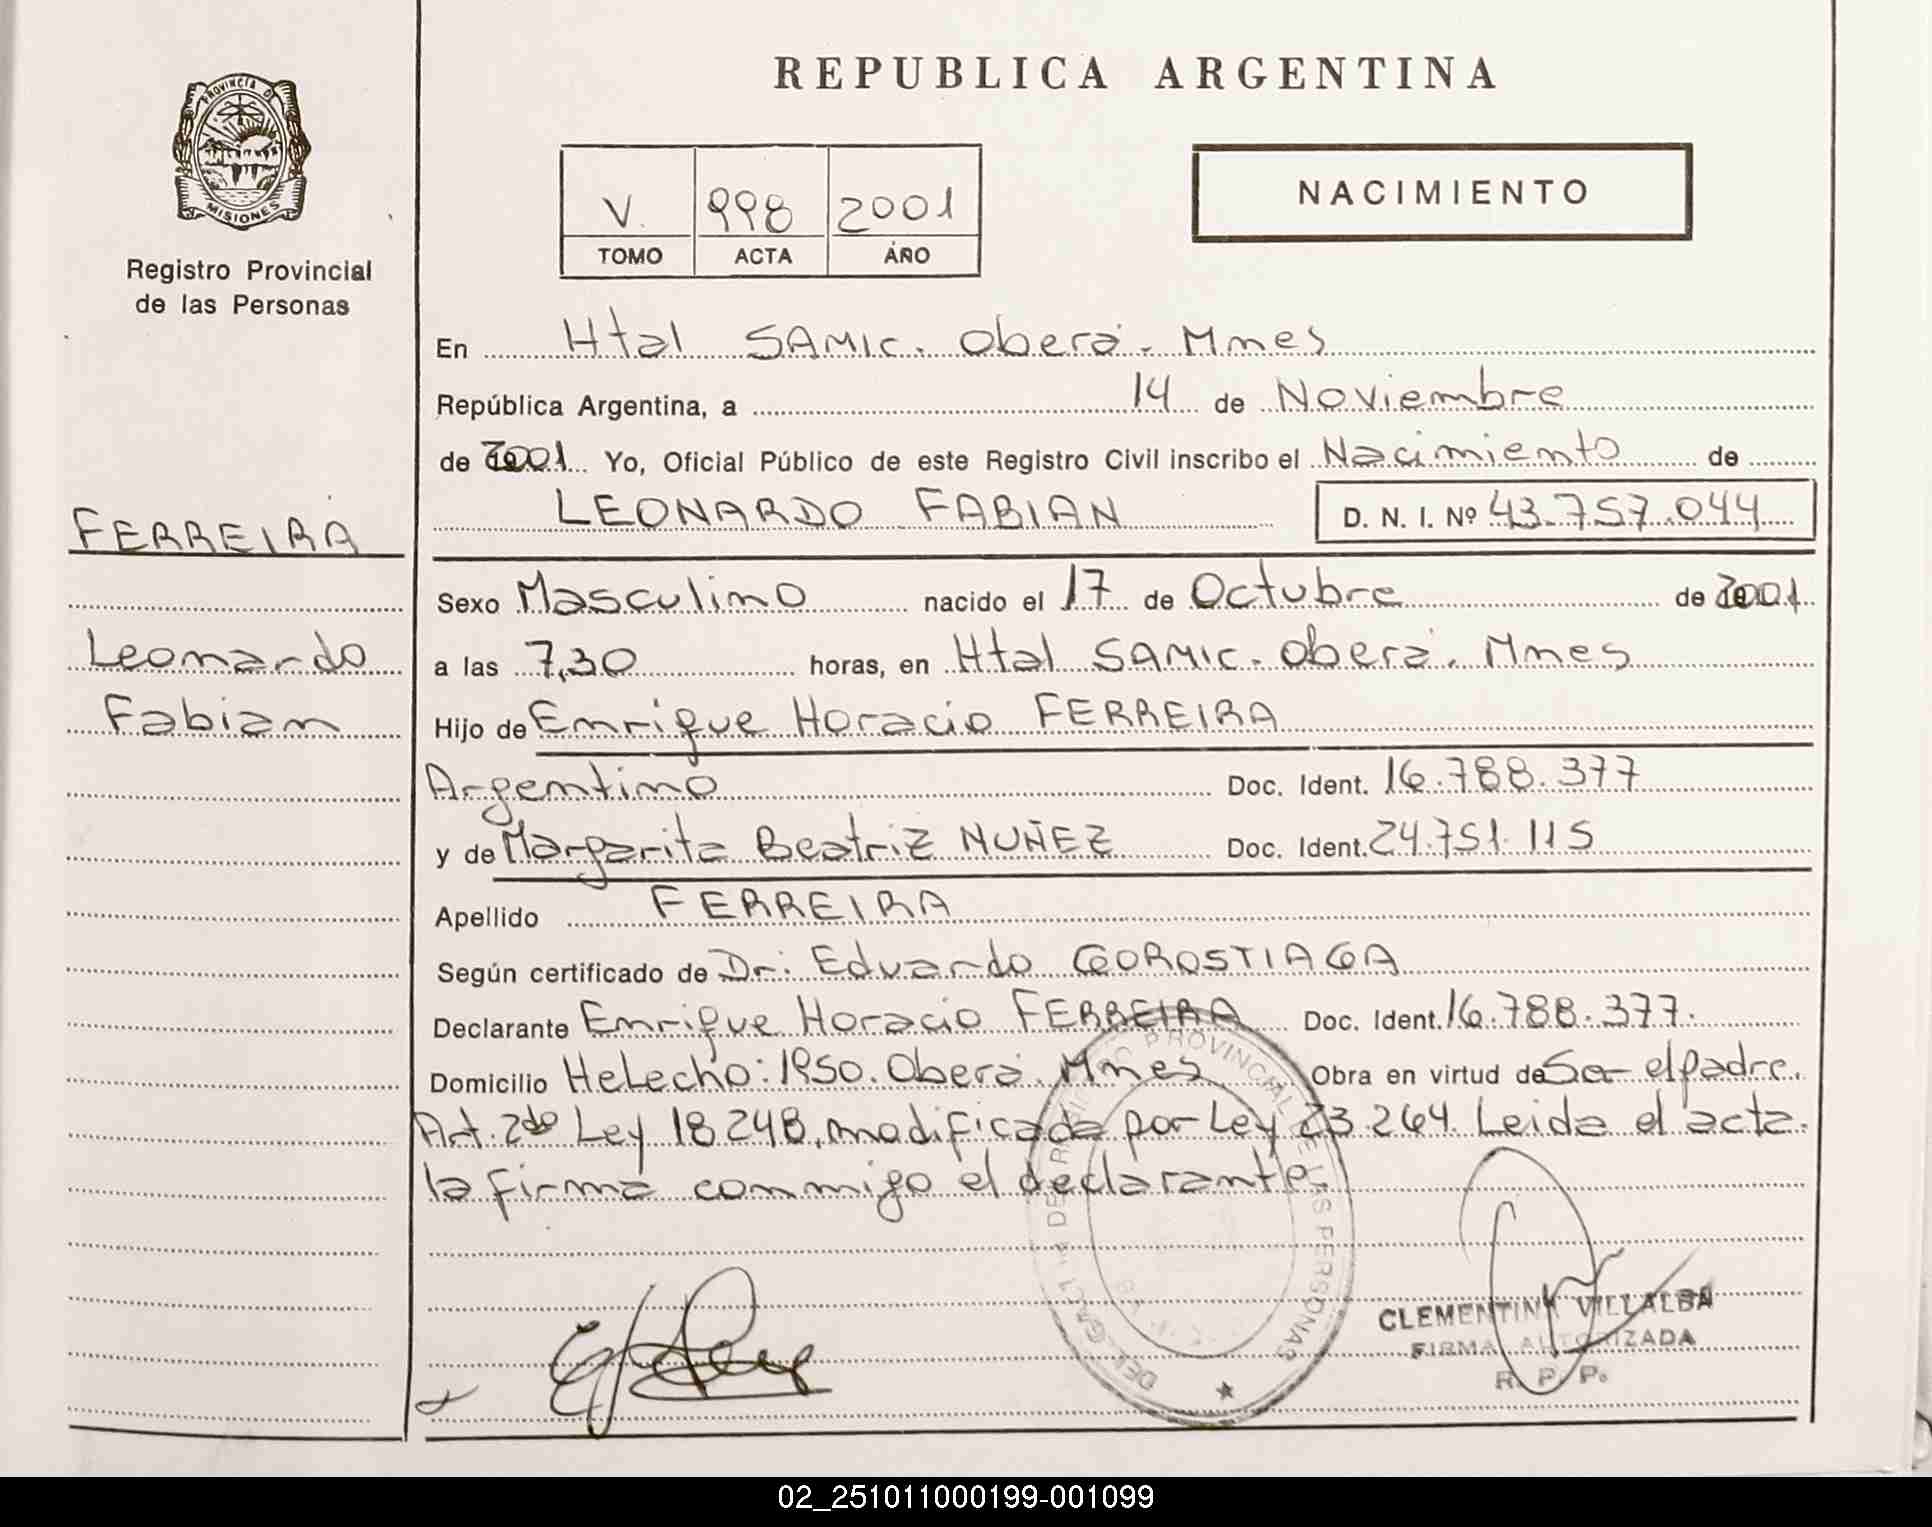 REPUBLICA ARGENTINA
PROVINCIA D
MISIONES
Registro Provincial
de las Personas
V. 998 2001
TOMO ACTA AÑO
NACIMIENTO
En Htal SAMIC. Oberá. Mnes
República Argentina, a 14 de Noviembre
de 2001 Yo, Oficial Público de este Registro Civil inscribo el Nacimiento de
LEONARDO FABIAN D. N. I. Nº 43.757.044
FERREIRA
Leonardo
Fabian
Sexo Masculino nacido el 17 de Octubre de 2001
a las 7,30 horas, en Htal SAMIC. Oberá. Mnes
Hijo de Enrique Horacio FERREIRA
Argentino Doc. Ident. 16.788.377
y de Margarita Beatriz NUÑEZ Doc. Ident. 24.751.115
Apellido FERREIRA
Según certificado de Dr: Eduardo GOROSTIAGA
Declarante Enrique Horacio FERREIRA Doc. Ident. 16.788.377.
Domicilio Helecho: 1950. Oberá. Mnes Obra en virtud de Ser el padre.
Art. 2do Ley 18248, modificada por Ley 23.264. Leida el acta.
la firma conmigo el declarante
PROVINCIAL DE LAS PERSONAS
CLEMENTINA VILLALBA
FIRMA AUTORIZADA
R. P. P.
02_251011000199-001099